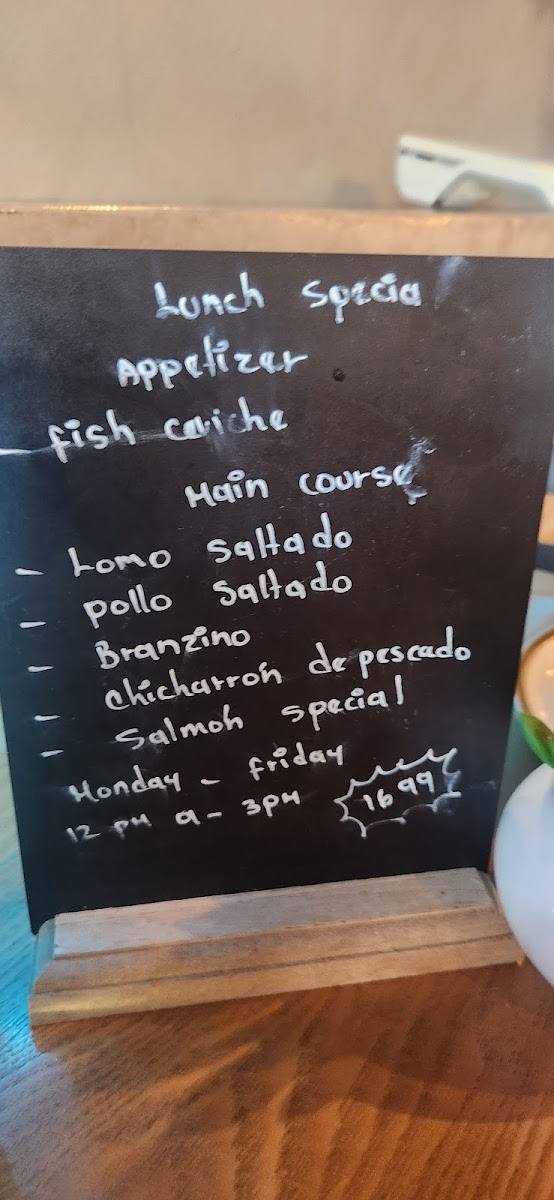 Lunch Specia
Appetizer
- fish ceviche
Main course
- Lomo Saltado
- pollo Saltado
- Branzino
- chicharroń de pescado
- Salmoń special
Monday - friday
12 pm a - 3pm 16 99